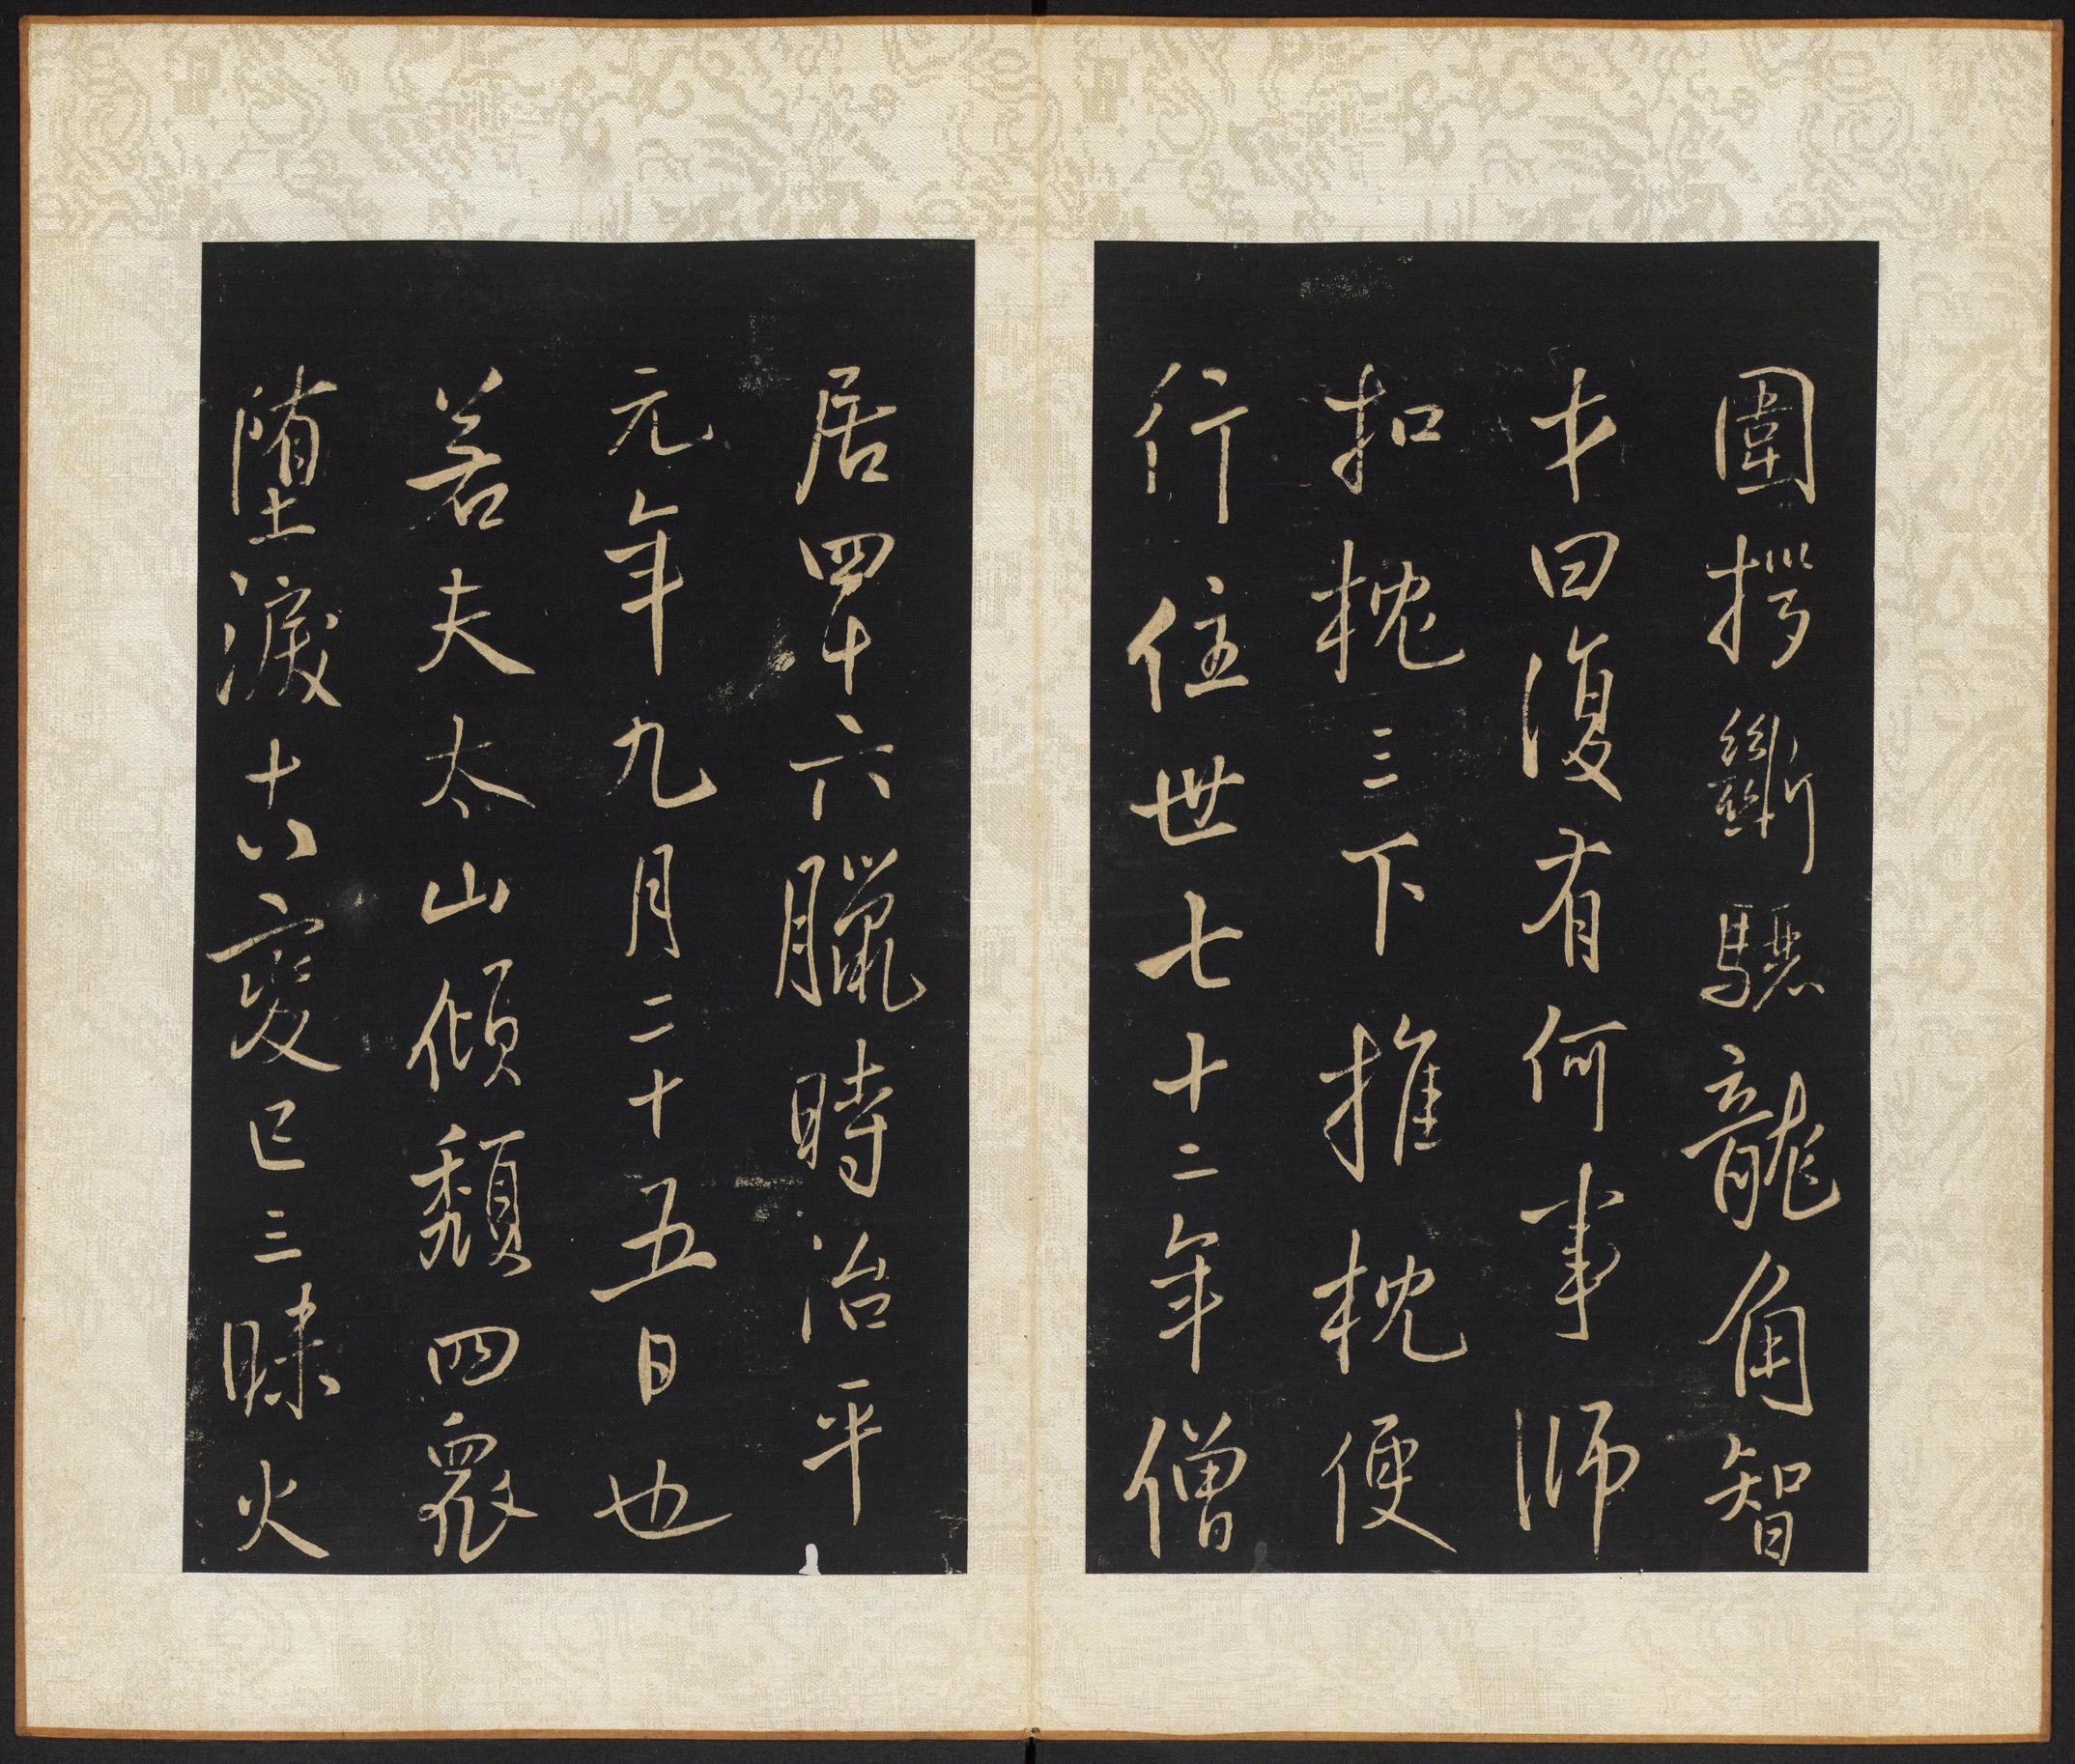 圍拶斷驪龍角智
才曰復有何事師
扣枕三下推枕便
行住世七十二年僧
居四十六臘時治平
元年九月二十五日也
若夫太山傾頹四衆
堕淚十八變已三昧火